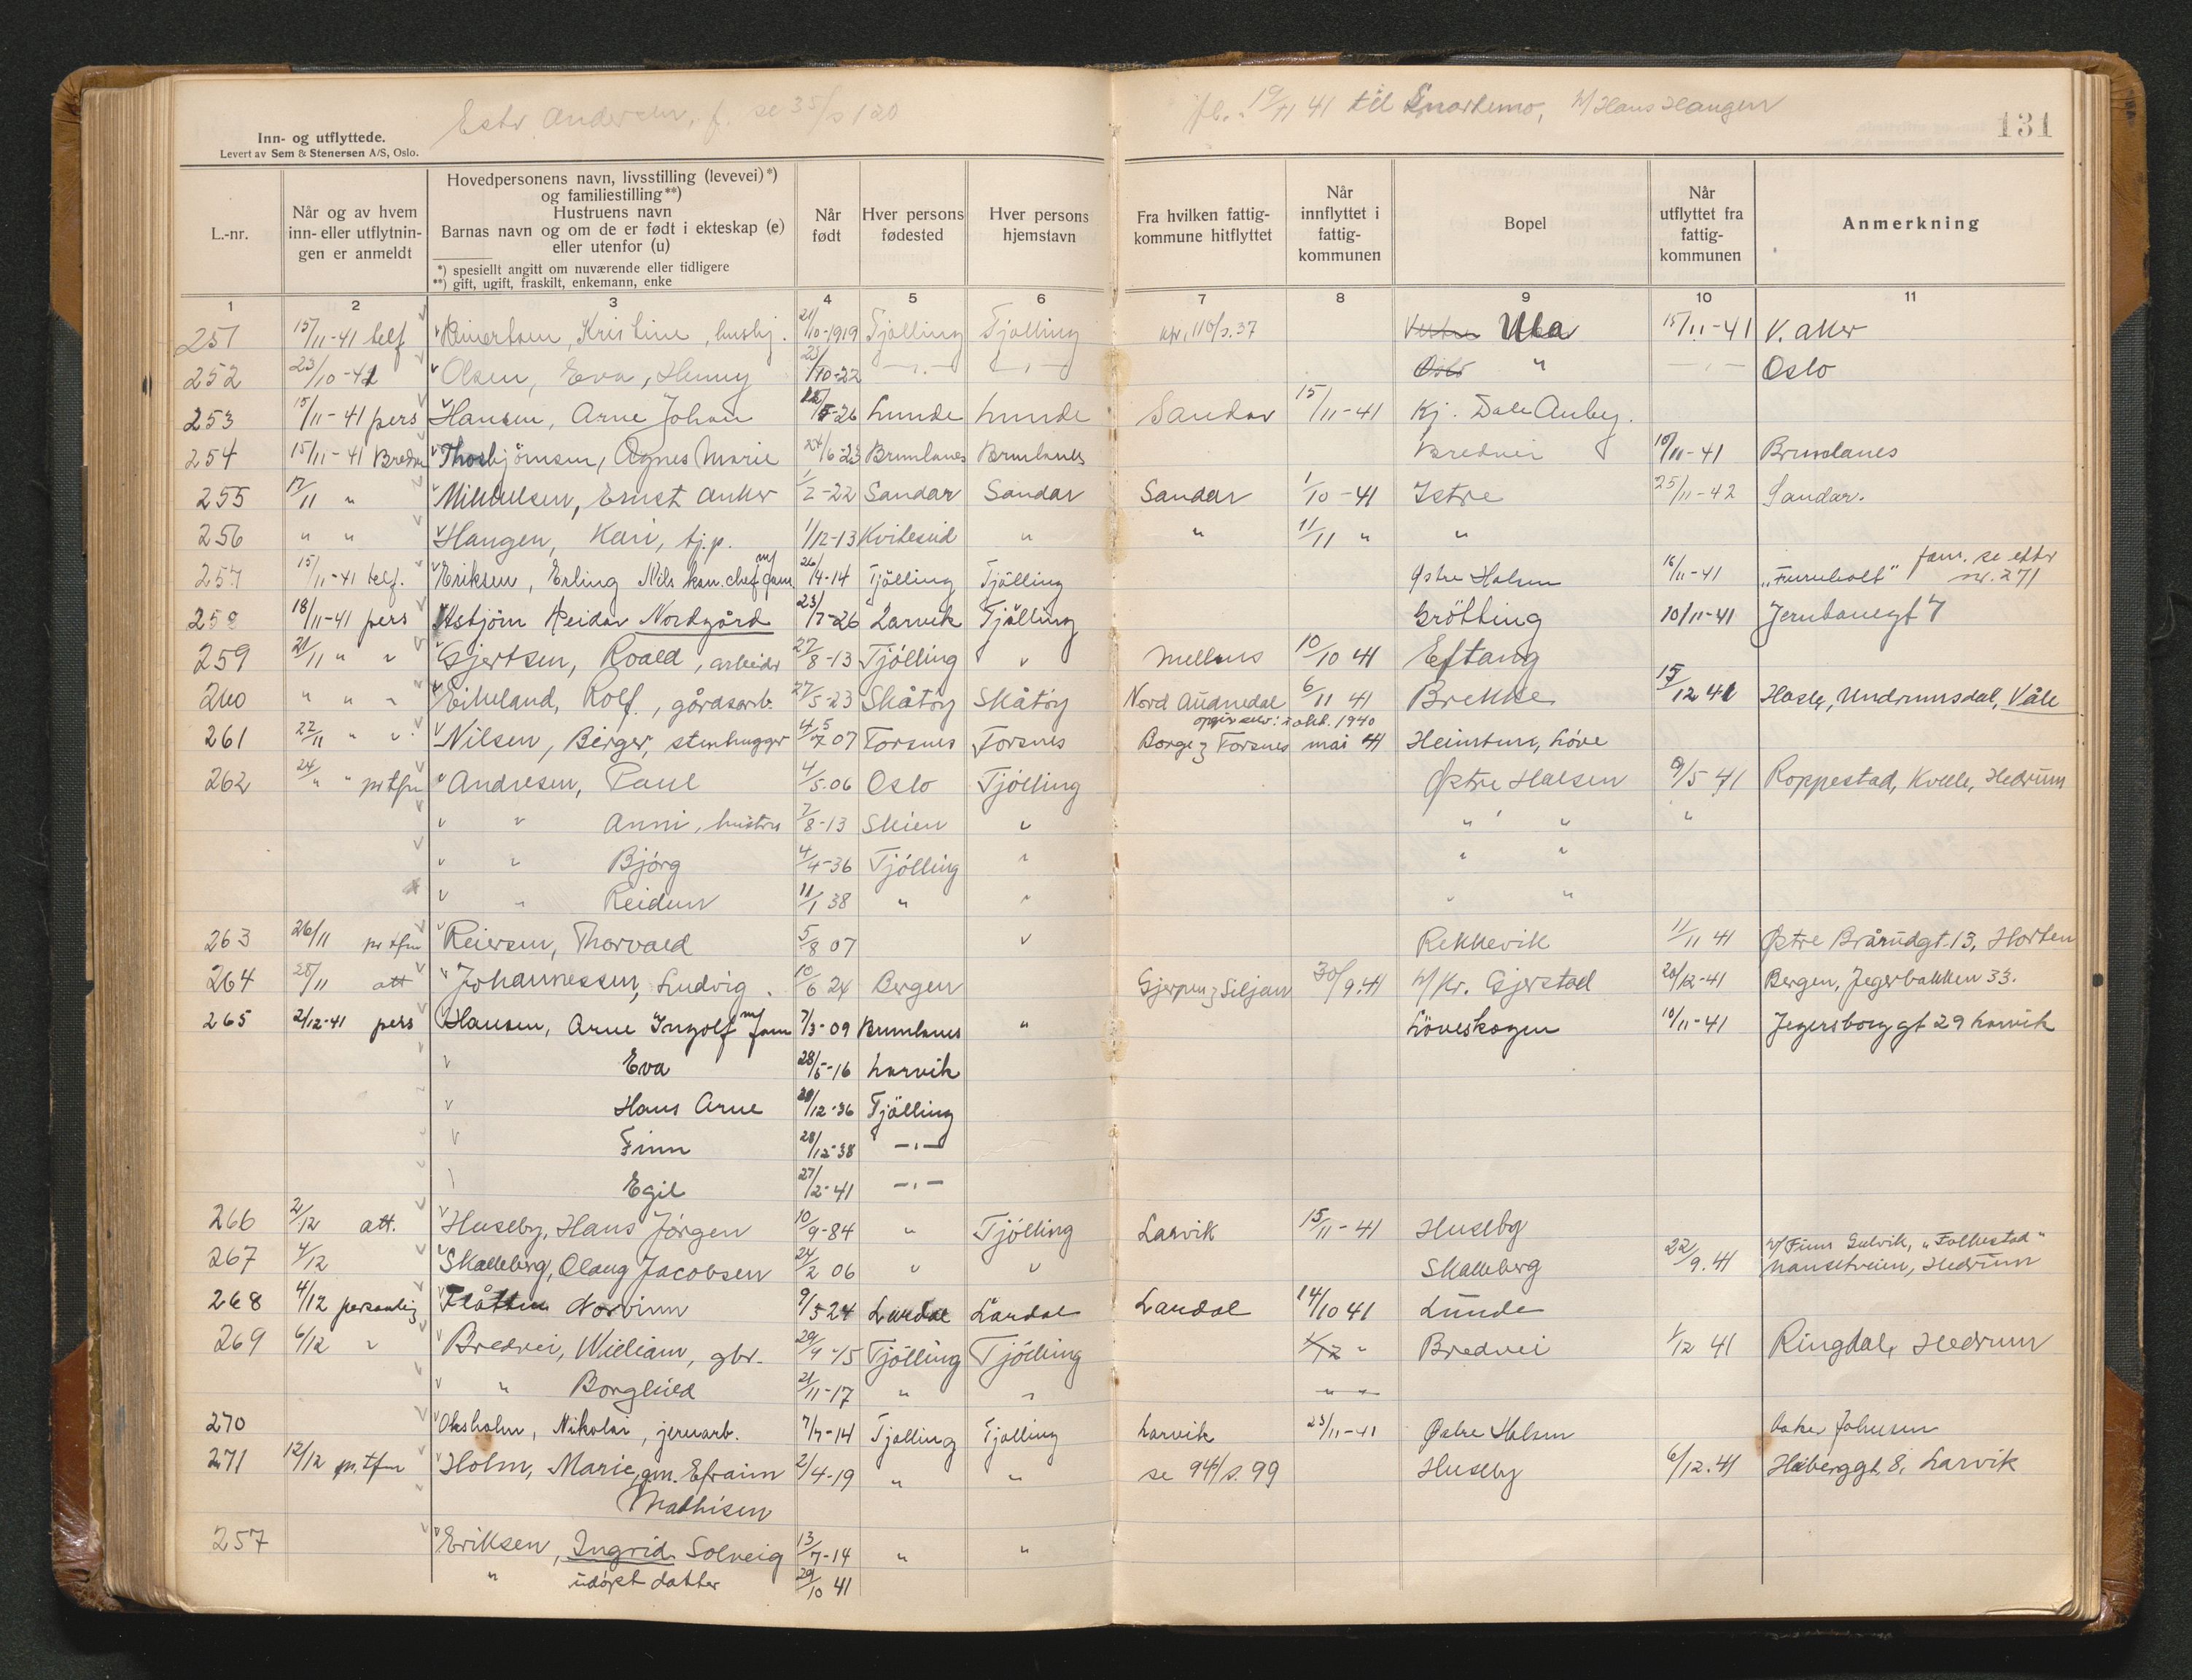 Estr Andersen, f. se 35/s 120
fl. 19/11 41 til Snartemo, v/ Hans Haugen
131
Inn- og utflyttede.
Levert av Sem & Stenersen A/S, Oslo.
L.-nr. Når og av hvem inn- eller utflytningen er anmeldt Hovedpersonens navn, livsstilling (levevei)*) og familiestilling**) Hustruens navn Barnas navn og om de er født i ekteskap (e) eller utenfor (u) *) spesiellt angitt om nuværende eller tidligere **) gift, ugift, fraskilt, enkemann, enke Når født Hver persons fødested Hver persons hjemstavn Fra hvilken fattigkommune hitflyttet Når innflyttet i fattigkommunen Bopel Når utflyttet fra fattigkommunen Anmerkning
1 2 3 4 5 6 7 8 9 10 11
251 15/11-41 telf Reinertsen, Kristine, hushj. 21/10-1919 Tjølling Tjølling 110/s.37 Ula 15/11-41 V. Aker
252 23/10-41 Olsen, Eva, Henny 23/10-22 -"- -"- Oslo " -"- Oslo
253 15/11-41 pers Hansen, Arne Johan 5-26 Lunde Lunde Sandar 15/11-41 Kj. Dale Auby.
254 15/11-41 Bredvei Thorbjørnsen, Agnes Marie 24/6-23 Brunlanes Brunlanes Bredvei 10/11-41 Brunlanes
255 17/11 " Mikkelsen, Ernst Anker 1/2-22 Sandar Sandar Sandar 1/10-41 Istre 25/11-42 Sandar.
256 " " Haugen, Kari, tj.p. 1/12-13 Kviteseid " " 11/11 " "
257 15/11-41 telf. Eriksen, Erling Nils kan.chef m/fam. 26/4-14 Tjølling Tjølling Østre Halsen 16/11-41 "Furuholt" fam. se etter nr. 271
258 18/11-41 pers Asbjørn Reidar Nordgård 23/7-26 Larvik Tjølling Grøtting 10/11-41 Jernbanegt 7
259 21/11 " " Gjertsen, Roald, arbeider 27/8-13 Tjølling " Melløs 10/10 41 Eftang
260 " " " Eikeland, Rolf, gårdsarb. 27/5-23 Skåtøy Skåtøy Nord Audnedal 6/11 41 Brekke 15/12 41 Hasle, Undrumsdal, Våle
opgir selv: i okt. 1940
261 22/11 " " Nilsen, Birger, stenhugger 4/5 07 Torsnes Torsnes Borge, Torsnes mai 41 Heimtun, Løve
262 24/" " pr tfn Andresen, Paul 4/5-06 Oslo Tjølling Østre Halsen 9/5 41 Roppestad, Kvelle, Hedrum
" " Anni, hustru 7/8-13 Skien " " " "
" " Bjørg 4/4-36 Tjølling " " "
" " Reidun 11/1 38 " " " "
263 26/11 pr tfn Reiersen, Thorvald 5/8 07 " Rekkevik 11/11 41 Østre Brårudgt. 13, Horten
264 28/11 att Johannessen, Ludvig. 10/6 24 Bergen Gjerpen, Siljan 30/9.41 v/ Kr. Gjerstad 20/12-41 Bergen, Jegerbakken 33.
265 2/12-41 pers Hansen, Arne Ingolf m/fam 7/3-09 Brunlanes " Løveskogen 10/11-41 Jegersborggt 29 Larvik
" Eva 28/5-16 Larvik
" Hans Arne 20/12-36 Tjølling
" Finn 28/12-38 -"-
Egil 27/2-41 -"-
266 2/12 att. Huseby, Hans Jørgen 10/9-84 " Tjølling Larvik 15/11-41 Huseby
267 4/12 Skalleberg, Olaug Jacobsen 24/2 06 " " Skalleberg 22/9.41 v/ Finn Gulvik, "Folkestad" Nansetveien, Hedrum
268 4/12 personlig Flåtten Norvinn 9/5-24 Lardal Lardal Lardal 14/10 41 Lunde
269 6/12 " Bredvei, William, gbr. 29/9-15 Tjølling Tjølling 1/12 " Bredvei 1/12 41 Ringdal, Hedrum
" " Borghild 21/11-17 " " " "
270 Oksholm, Nikolai, jernarb. 7/7-14 Tjølling Tjølling Larvik 23/11-41 Østre Halsen Johnsen
271 12/12 pr. tfn Holm, Marie, gm. Efraim 2/4-19 " " se 94/s. 99 Huseby 6/12.41 8, Larvik
Mathisen
257 Eriksen, Ingrid Solveig 13/7-14 " "
" udøpt datter 29/10 41